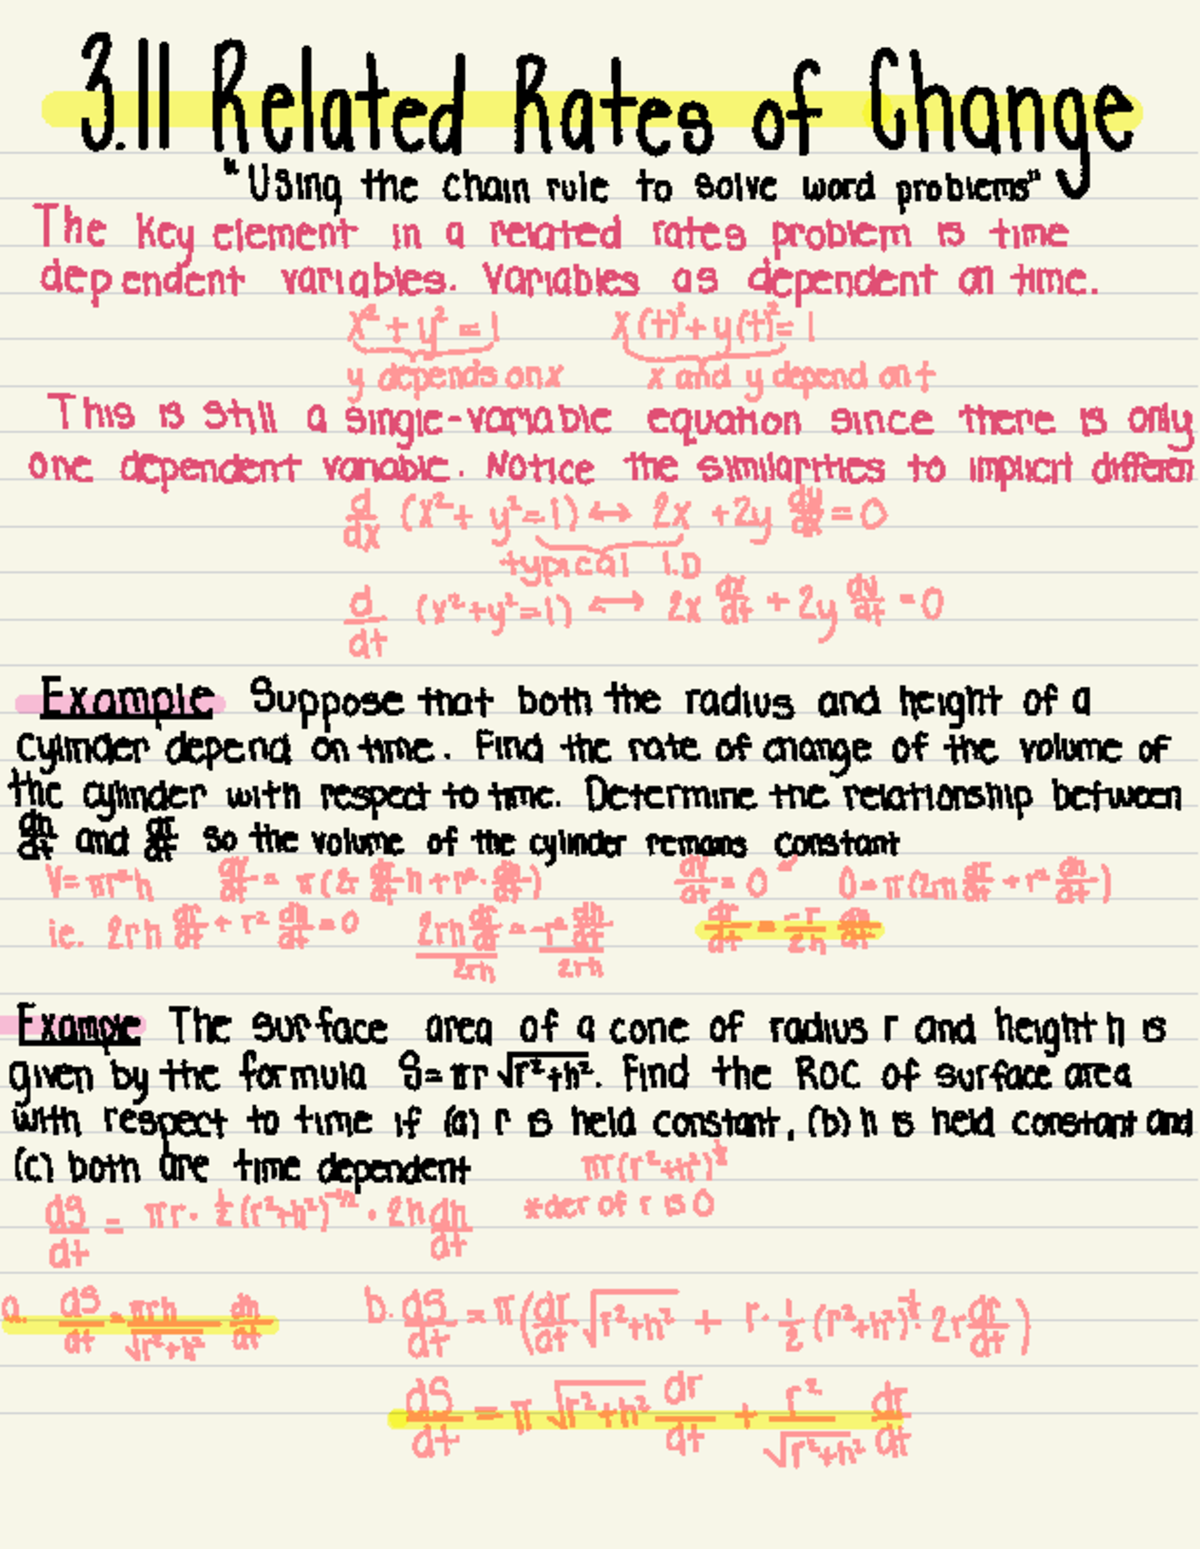 3.11 Related Rates of Change
"Using the chain rule to solve word problems"
The key element in a related rates problem is time
dependent variables. Variables as dependent on time.
x² + y² = 1 x(t)² + y(t)² = 1
y depends on x x and y depend on t
This is still a single-variable equation since there is only
one dependent variable. Notice the similarities to implicit differen
d/dx (x² + y² = 1) ↔ 2x + 2y dy/dx = 0
typical I.D
d/dt (x² + y² = 1) ↔ 2x dx/dt + 2y dy/dt = 0
Example Suppose that both the radius and height of a
cylinder depend on time. Find the rate of change of the volume of
the cylinder with respect to time. Determine the relationship between
dh/dt and dr/dt so the volume of the cylinder remains constant
V = πr²h dV/dt = π(2r dr/dt h + r² · dh/dt) dV/dt = 0 0 = π(2rh dr/dt + r² dh/dt)
ie. 2rh dr/dt + r² dh/dt = 0 2rh dr/dt / 2rh = -r² dh/dt / 2rh dr/dt = -r/2h dh/dt
Example The surface area of a cone of radius r and height h is
given by the formula S = πr √(r²+h²). Find the ROC of surface area
with respect to time if (a) r is held constant, (b) h is held constant and
(c) both are time dependent πr(r²+h²)^½
dS/dt = πr · ½(r²+h²)^-1/2 · 2h dh/dt *der of r is 0
a. dS/dt = πrh/√(r²+h²) dh/dt b. dS/dt = π(dr/dt √(r²+h²) + r · ½(r²+h²)^-½ · 2r dr/dt)
dS/dt = π √(r²+h²) dr/dt + r²/√(r²+h²) dr/dt